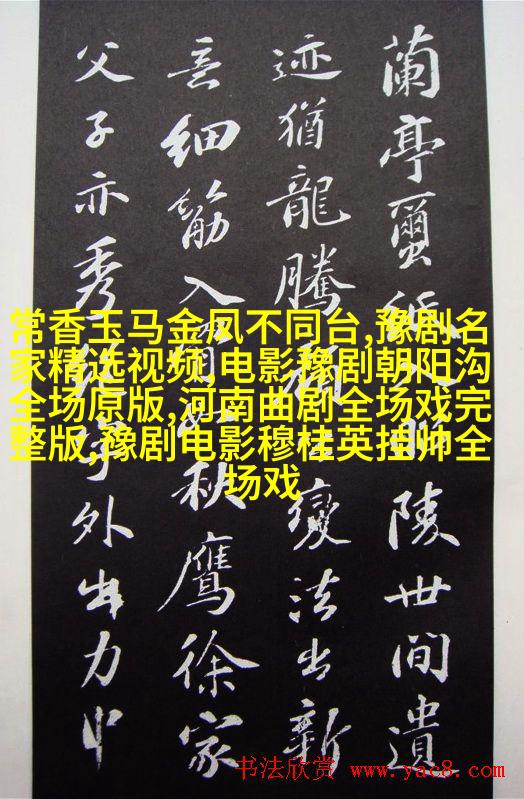 常香玉马金凤不同台,豫剧名
家精选视频,电影豫剧朝阳沟
全场原版,河南曲剧全场戏完
整版,豫剧电影穆桂英挂帅全
场戏
蘭亭陵世間遺
迹猶龍騰變法出新
意細筋入秋鷹徐家
父子亦秀字外出力中
书法欣赏 www.yac8.com